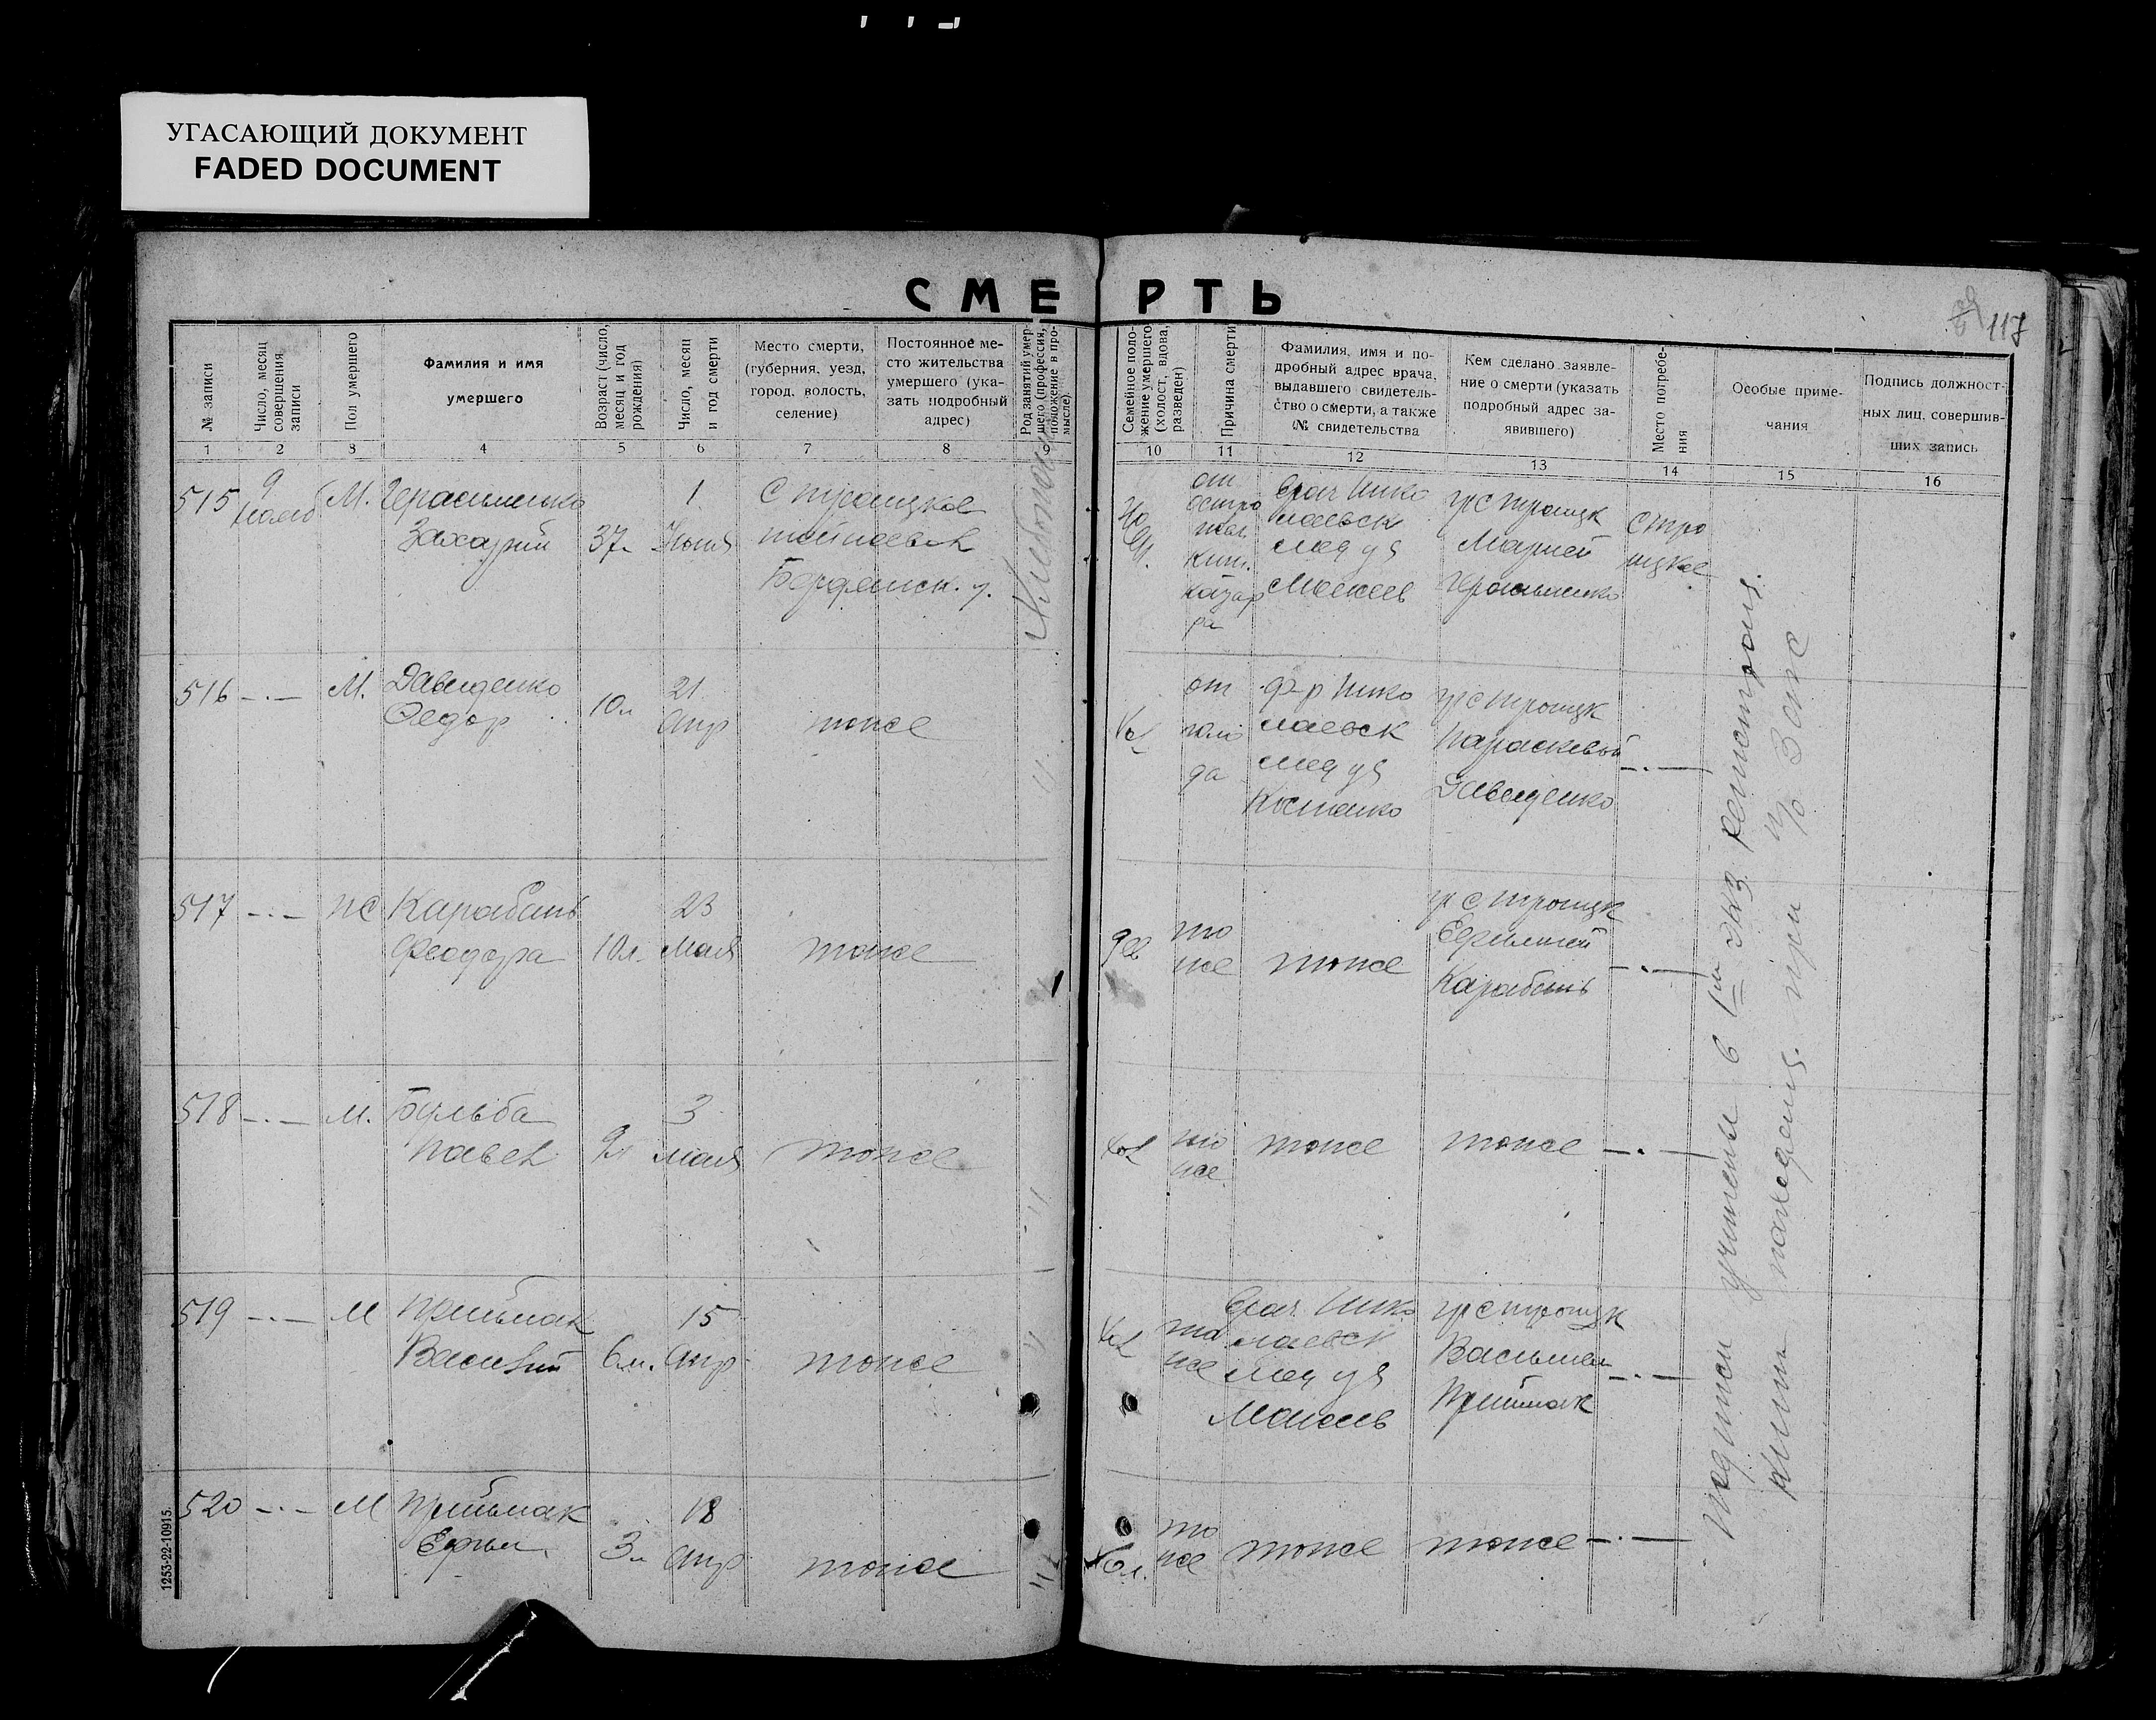 УГАСАЮЩИЙ ДОКУМЕНТ
FADED DOCUMENT
СМЕРТЬ
117
№ записи
Число, месяц
совершения
записи
Пол умершего
Фамилия и имя
умершего
Возраст (число,
месяц и год
рождения)
Число, месяц
и год смерти
Место смерти,
(губерния, уезд,
город, волость,
селение)
Постоянное ме-
сто жительства
умершего (ука-
зать подробный
адрес)
Род занятий умер-
шего (профессия,
положение в про-
мысле).
Семейное поло-
жение умершего
(холост, вдова,
разведен)
Причина смерти
Фамилия, имя и по-
дробный адрес врача,
выдавшего свидетель-
ство о смерти, а также
№ свидетельства
Кем сделано заявле-
ние о смерти (указать
подробный адрес за-
явившего)
Место погребе-
ния
Особые приме-
чания
Подпись должност-
ных лиц, совершив-
ших запись
1 2 3 4 5 6 7 8 9 10 11 12 13 14 15 16
515
9
М.
Герасименко
Захарий
37л
1
Июня
с Троицкое
Бердянск. у.
от
остро
киш.
катар
ра
врач Нико
лаевск
мед уч
гр с Троицк
Марией
Герасименко
с Тро
ицкое
516 -·-
М.
Давиденко
Федор
10л
21
апр
тоже
Хол
от
голо
да
ф-р Нико
лаевск
мед уч
Костенко
гр с Троицк
Параскевый
Давиденко
-·-
517 -·-
ж
Карабань
Феодора
10л.
23
мая
тоже
дев
то
же
тоже
гр с Троицк
Ефимией
Карабань
-·-
518 -·-
м.
Бульба
Павел
9л
3
мая
тоже
Хол
то
же
тоже
тоже
-·-
519 -·-
М
Приймак
Василий
6л.
15
апр
тоже
Хол
то
же
врач Нико
лаевск
мед уч
гр с Троицк
Приймак
-·-
520 -·-
М
Приймак
Ефим
3л
18
апр
тоже
Хол.
то
же
тоже
тоже
-·-
в 1м экз.
при
Загс
1253-22-10915.